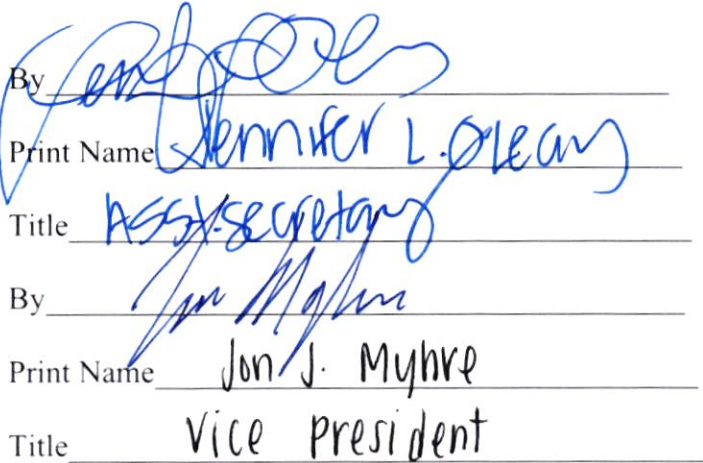 By
Print Name Jennifer L. O'Leary
Title Asst. Secretary
By Jon Myhre
Print Name Jon J. Myhre
Title Vice President